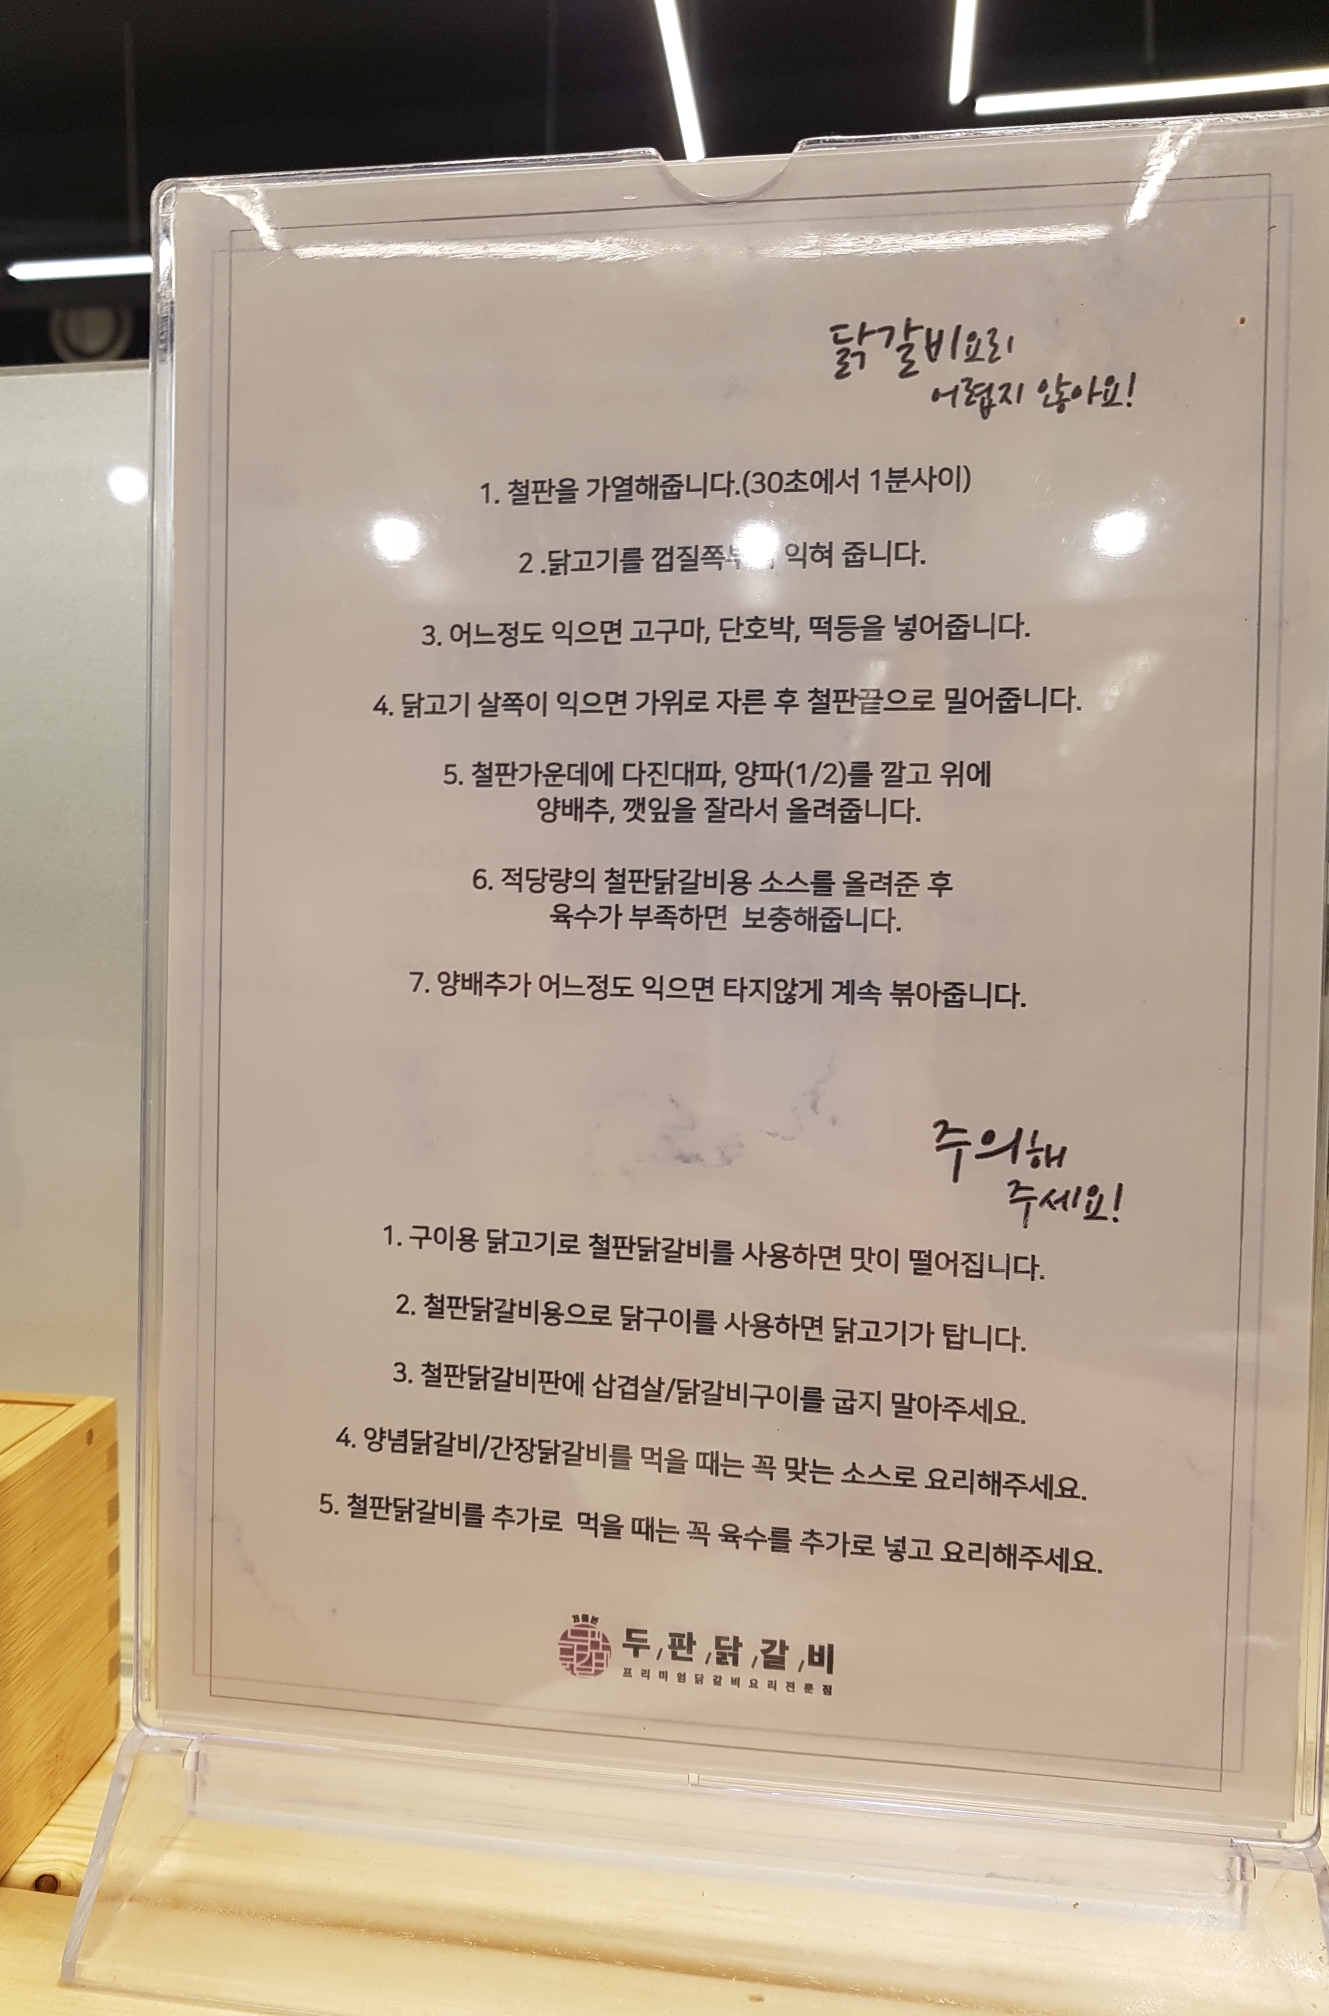 닭갈비요리
어렵지 않아요!
1. 철판을 가열해줍니다.(30초에서 1분사이)
2 .닭고기를 껍질쪽 익혀 줍니다.
3. 어느정도 익으면 고구마, 단호박, 떡등을 넣어줍니다.
4. 닭고기 살쪽이 익으면 가위로 자른 후 철판끝으로 밀어줍니다.
5. 철판가운데에 다진대파, 양파(1/2)를 깔고 위에
양배추, 깻잎을 잘라서 올려줍니다.
6. 적당량의 철판닭갈비용 소스를 올려준 후
육수가 부족하면 보충해줍니다.
7. 양배추가 어느정도 익으면 타지않게 계속 볶아줍니다.
주의해
주세요!
1. 구이용 닭고기로 철판닭갈비를 사용하면 맛이 떨어집니다.
2. 철판닭갈비용으로 닭구이를 사용하면 닭고기가 탑니다.
3. 철판닭갈비판에 삼겹살/닭갈비구이를 굽지 말아주세요.
4. 양념닭갈비/간장닭갈비를 먹을 때는 꼭 맞는 소스로 요리해주세요.
5. 철판닭갈비를 추가로 먹을 때는 꼭 육수를 추가로 넣고 요리해주세요.
두,판,닭,갈,비
프리미엄닭갈비요리전문점